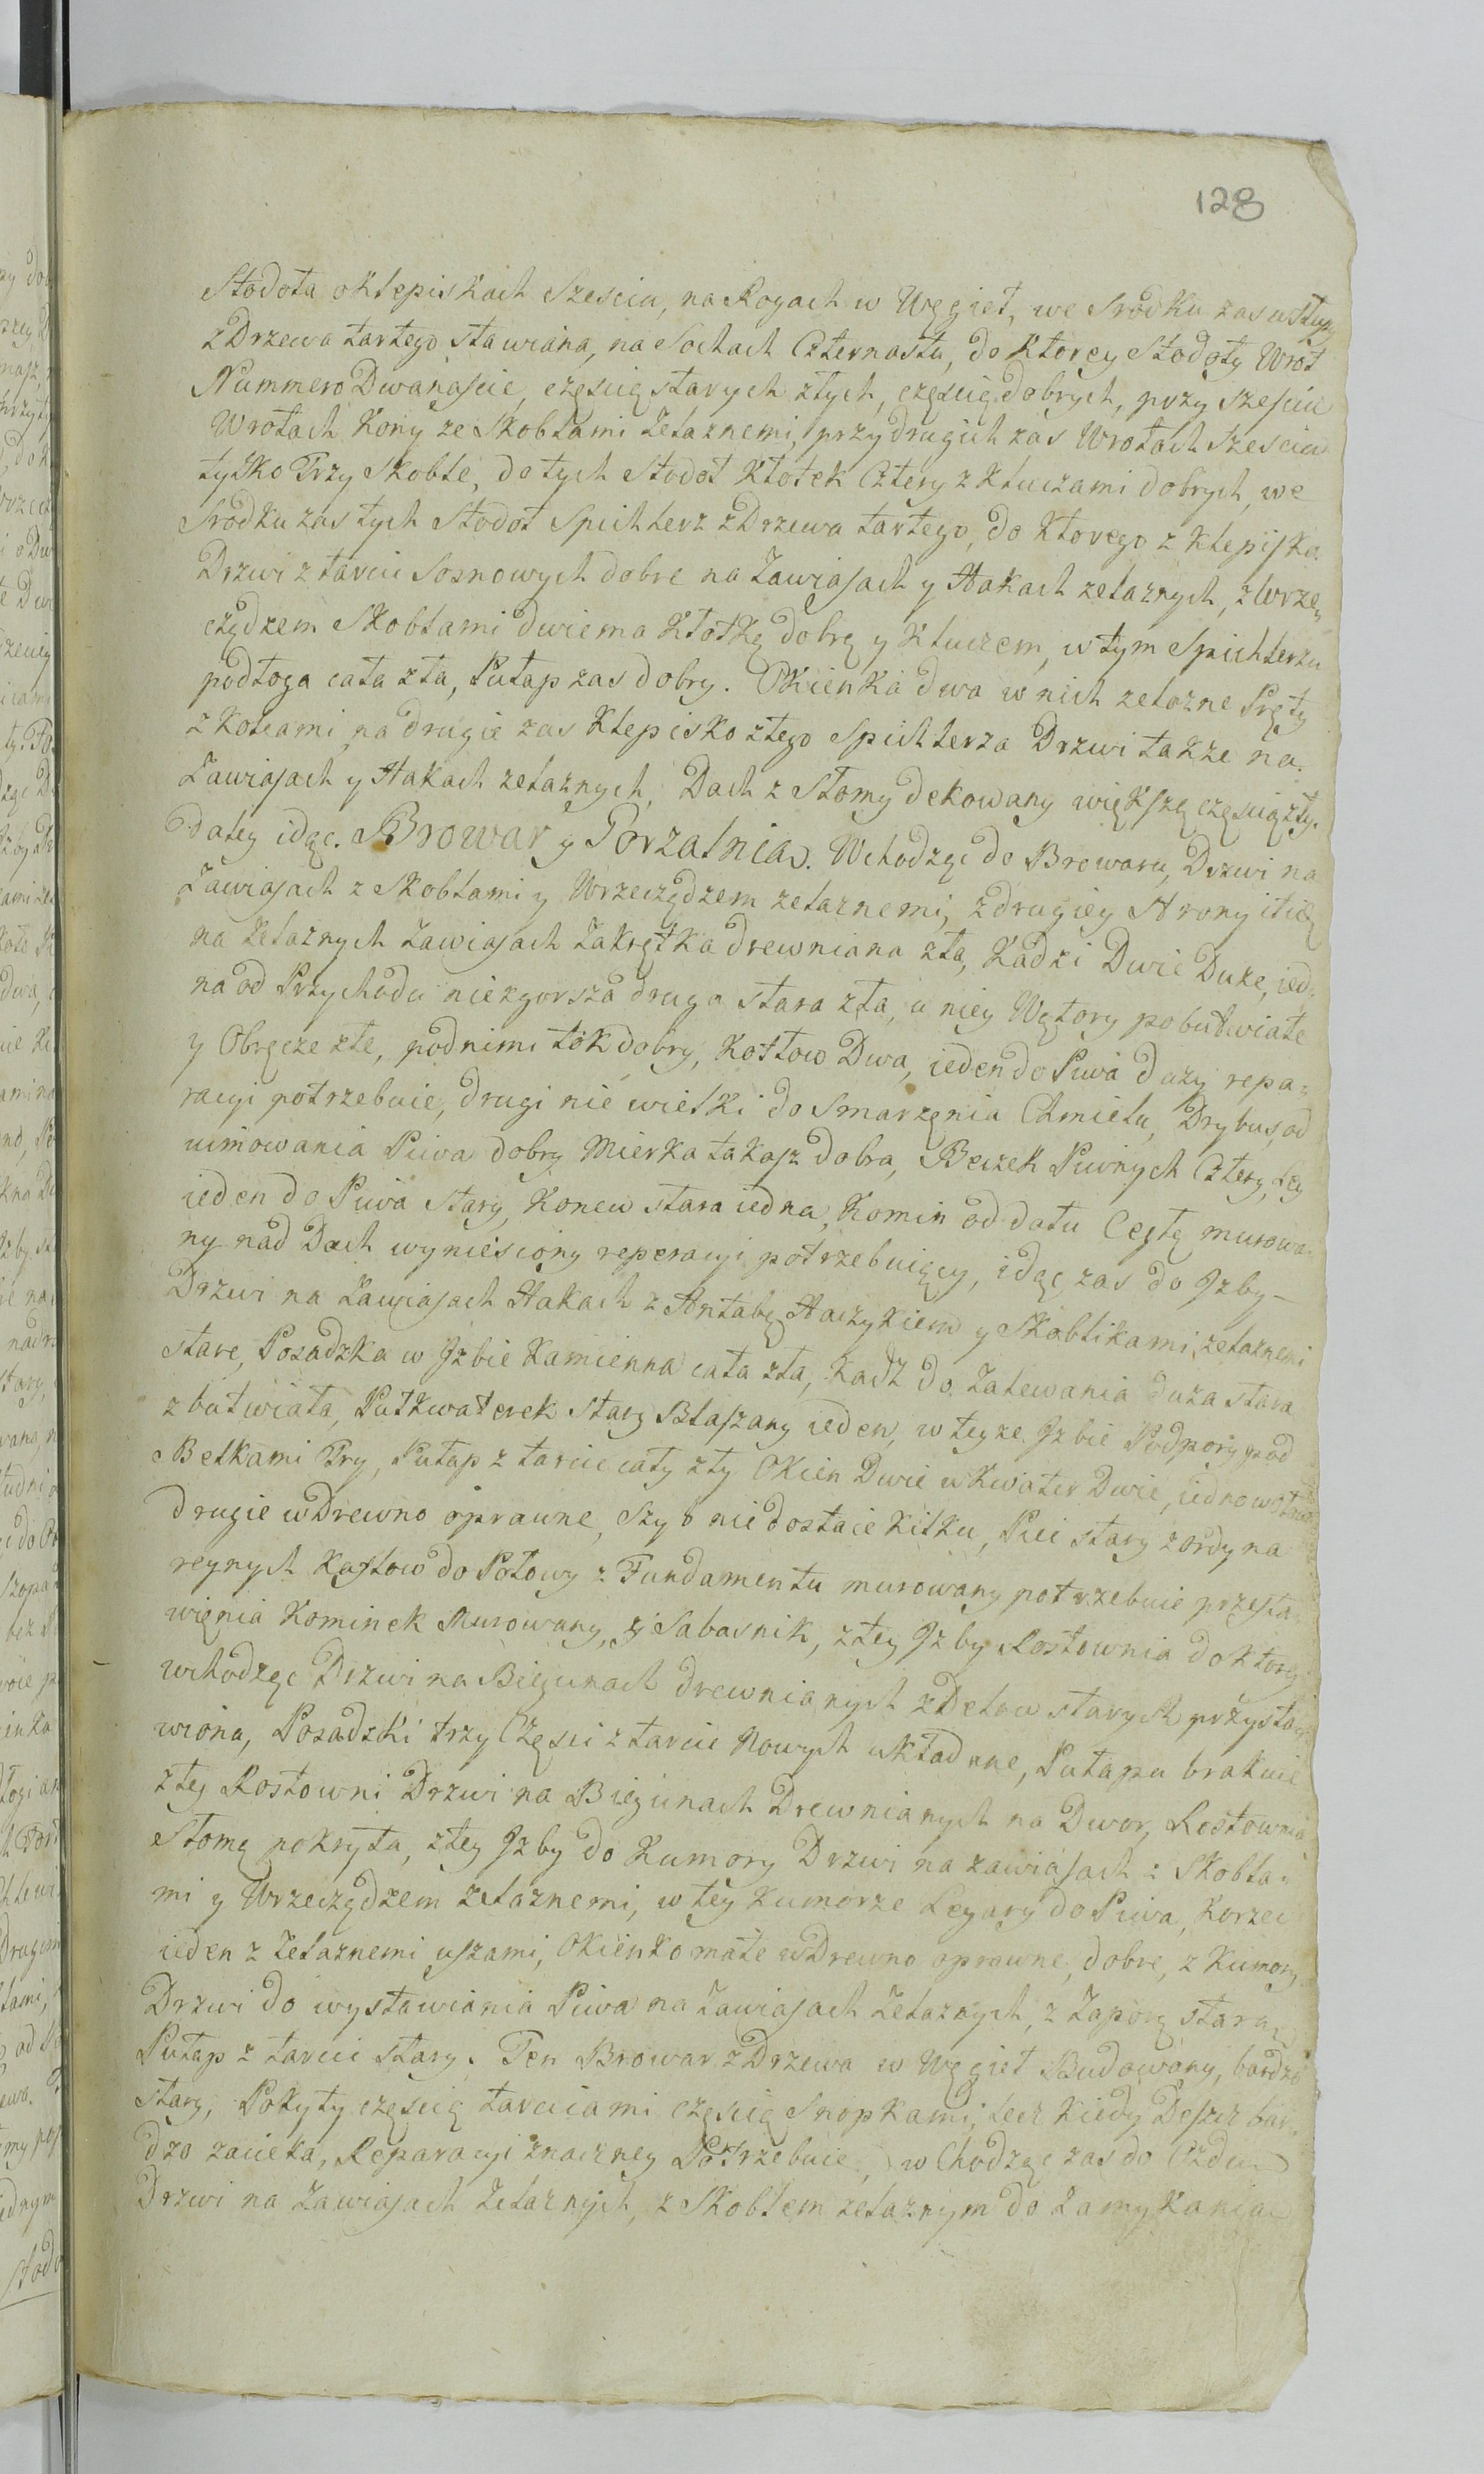 128
Stodoła o Klepiskach Szesciu, na Rogach w Węgieł, we Srodku zas w słupy
z Drzewa tartego stawiana, na Sochach Czternastu, do Ktorey Stodoły Wrot
Nummero Dwanaście, częscią starych złych, częscią dobrych, przy Szesciu
Wrotach Kony ze Skoblami Zelaznemi, przy drugich zas Wrotach Szesciu
tylko Trzy Skoble, do tych Stodoł Kłotek Cztery z Kluczami dobrych, we
Srodku zas tych Stodoł Spichlerz z Drzewa tartego, do Ktorego z Klepiska
Drzwi z tarcic Sosnowych dobre na Zawiasach y Hakach zelaznych, z Wrze,,
czędzem Skoblami dwiema Kłotką dobrą y Kluczem, w tym Spichlerzu
podłoga cała zła, Pułap zas dobry. Okienka dwa w nich zelazne Pręty
z Kolcami, na drugie zas Klepisko z tego Spichlerza Drzwi takze na
Zawiasach y Hakach zelaznych, Dach z Słomy dekowany większą częscią zły.
Daley idąc. Browar y Gorzalnia. Wchodząc do Browaru, Drzwi na
Zawiasach z Skoblami y Wrzeczędzem zelaznemi, z drugiey Strony
na Zelaznych Zawiasach Zakrętka drewniana zła, Kadzi Dwie Duze, ied,,
na od Przychodu niezgorsza druga stara zła, u niey Wątory pobutwiałe
y Obręcze złe, pod nimi tok dobry, Kotłow Dwa, ieden do Piwa duzy repa,,
racyi potrzebuie, drugi nie wielki do Smarzęnia Chmielu, Drybus od
uimowania Piwa dobry Mierka takasz dobra, Beczek Piwnych Cztery, Ley
ieden do Piwa stary, Konew stara iedna, Komin od dołu Cegłą murowa,,
ny nad Dach wyniesiony reperacyi potrzebuiący, idąc zas do Jzby –
Drzwi na Zawiasach Hakach z Antabą Haczykiem y Skoblikami zelaznemi
stare, Posadzka w Jzbie Kamienna cała zła, Kadz do Zalewania duza stara
zbutwiała, Pułkwaterek stary Blaszany ieden, w teyze Jzbie Podpory pod
Belkami Try, Pułap z tarcic cały zły Okien Dwie w Kwater Dwie, iedno w ołow
drugie w Drewno oprawne, Szyb niedostaie kilku, Piec stary z ordyna
reynych Kaflow do Połowy z Fundamentu murowany potrzebuie przesta,,
więnia Kominek Murowany, y Sabasnik, z tey Jzby Rostownia do Ktorey
wchodząc Drzwi na Biegunach drewnianych z Delow starych przysta,,
wiona, Posadzki trzy Częsci z tarcic Nowych układane, Pułapu brakuie
z tey Rostowni Drzwi na Biegunach Drewnianych na Dwor, Rostownia
Słomą pokryta, z tey Jzby do Kumory Drzwi na zawiasach z Skobla,,
mi y Wrzeczędzem zelaznemi, w tey Kumorze Legary do Piwa, Korzec
ieden z Zelaznemi uszami, Okienko małe w Drewno oprawne, dobre, z Kumory
Drzwi do wystawiania Piwa na Zawiasach Zelaznych, z Zaporą starą
Pułap z tarcic stary. Ten Browar z Drzewa w Węgieł Budowany, bardzo
stary, Pokyty częscią tarcicami częscią Snopkami, lecz kiedy Deszcz bar,,
dzo zacieka, Reparacyi znaczney Potrzebuie, w Chodząc zas do Ozdu
Drzwi na Zawiasach Zelaznych, z Skoblem zelaznym do Zamykania